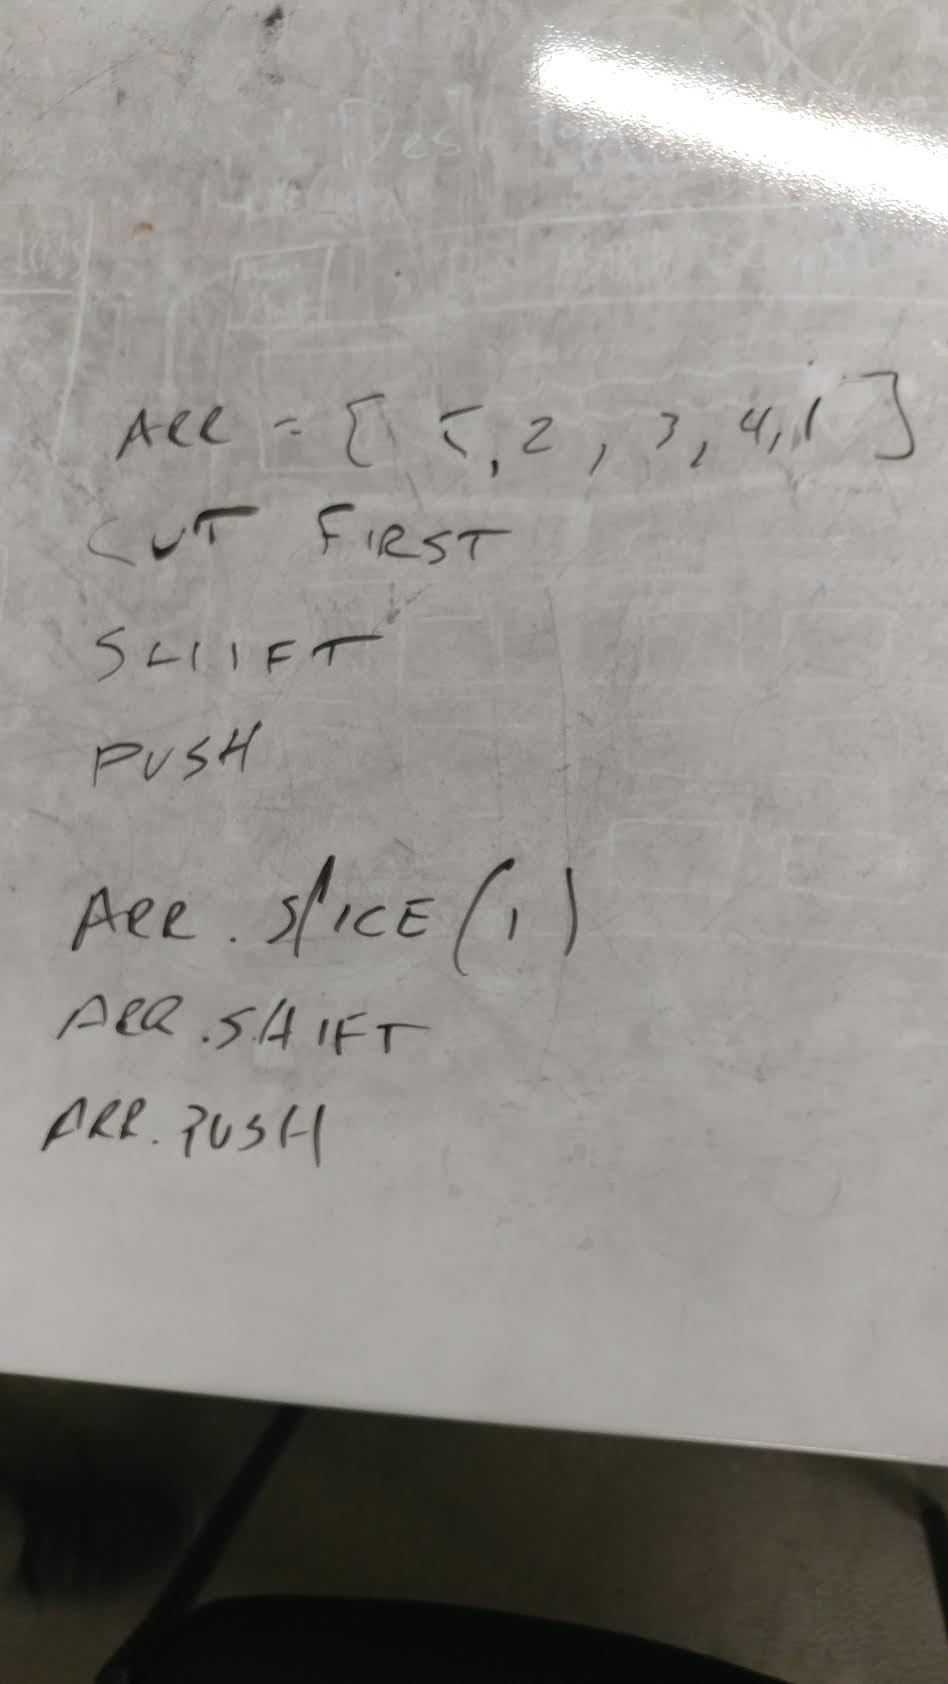 ARR = [ 5, 2, 3, 4, 1 ]
CUT FIRST
SHIFT
PUSH
ARR. SLICE (1)
ARR. SHIFT
ARR. PUSH